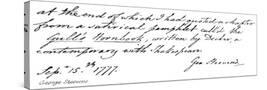 at the end of which I had quoted a chapter
from a satirical pamphlet call'd the
Gull's Hornbook, written by Decker a
contemporary with Shakespear.
Geo Steevens
Sep. 15.th 1777.
George Steevens